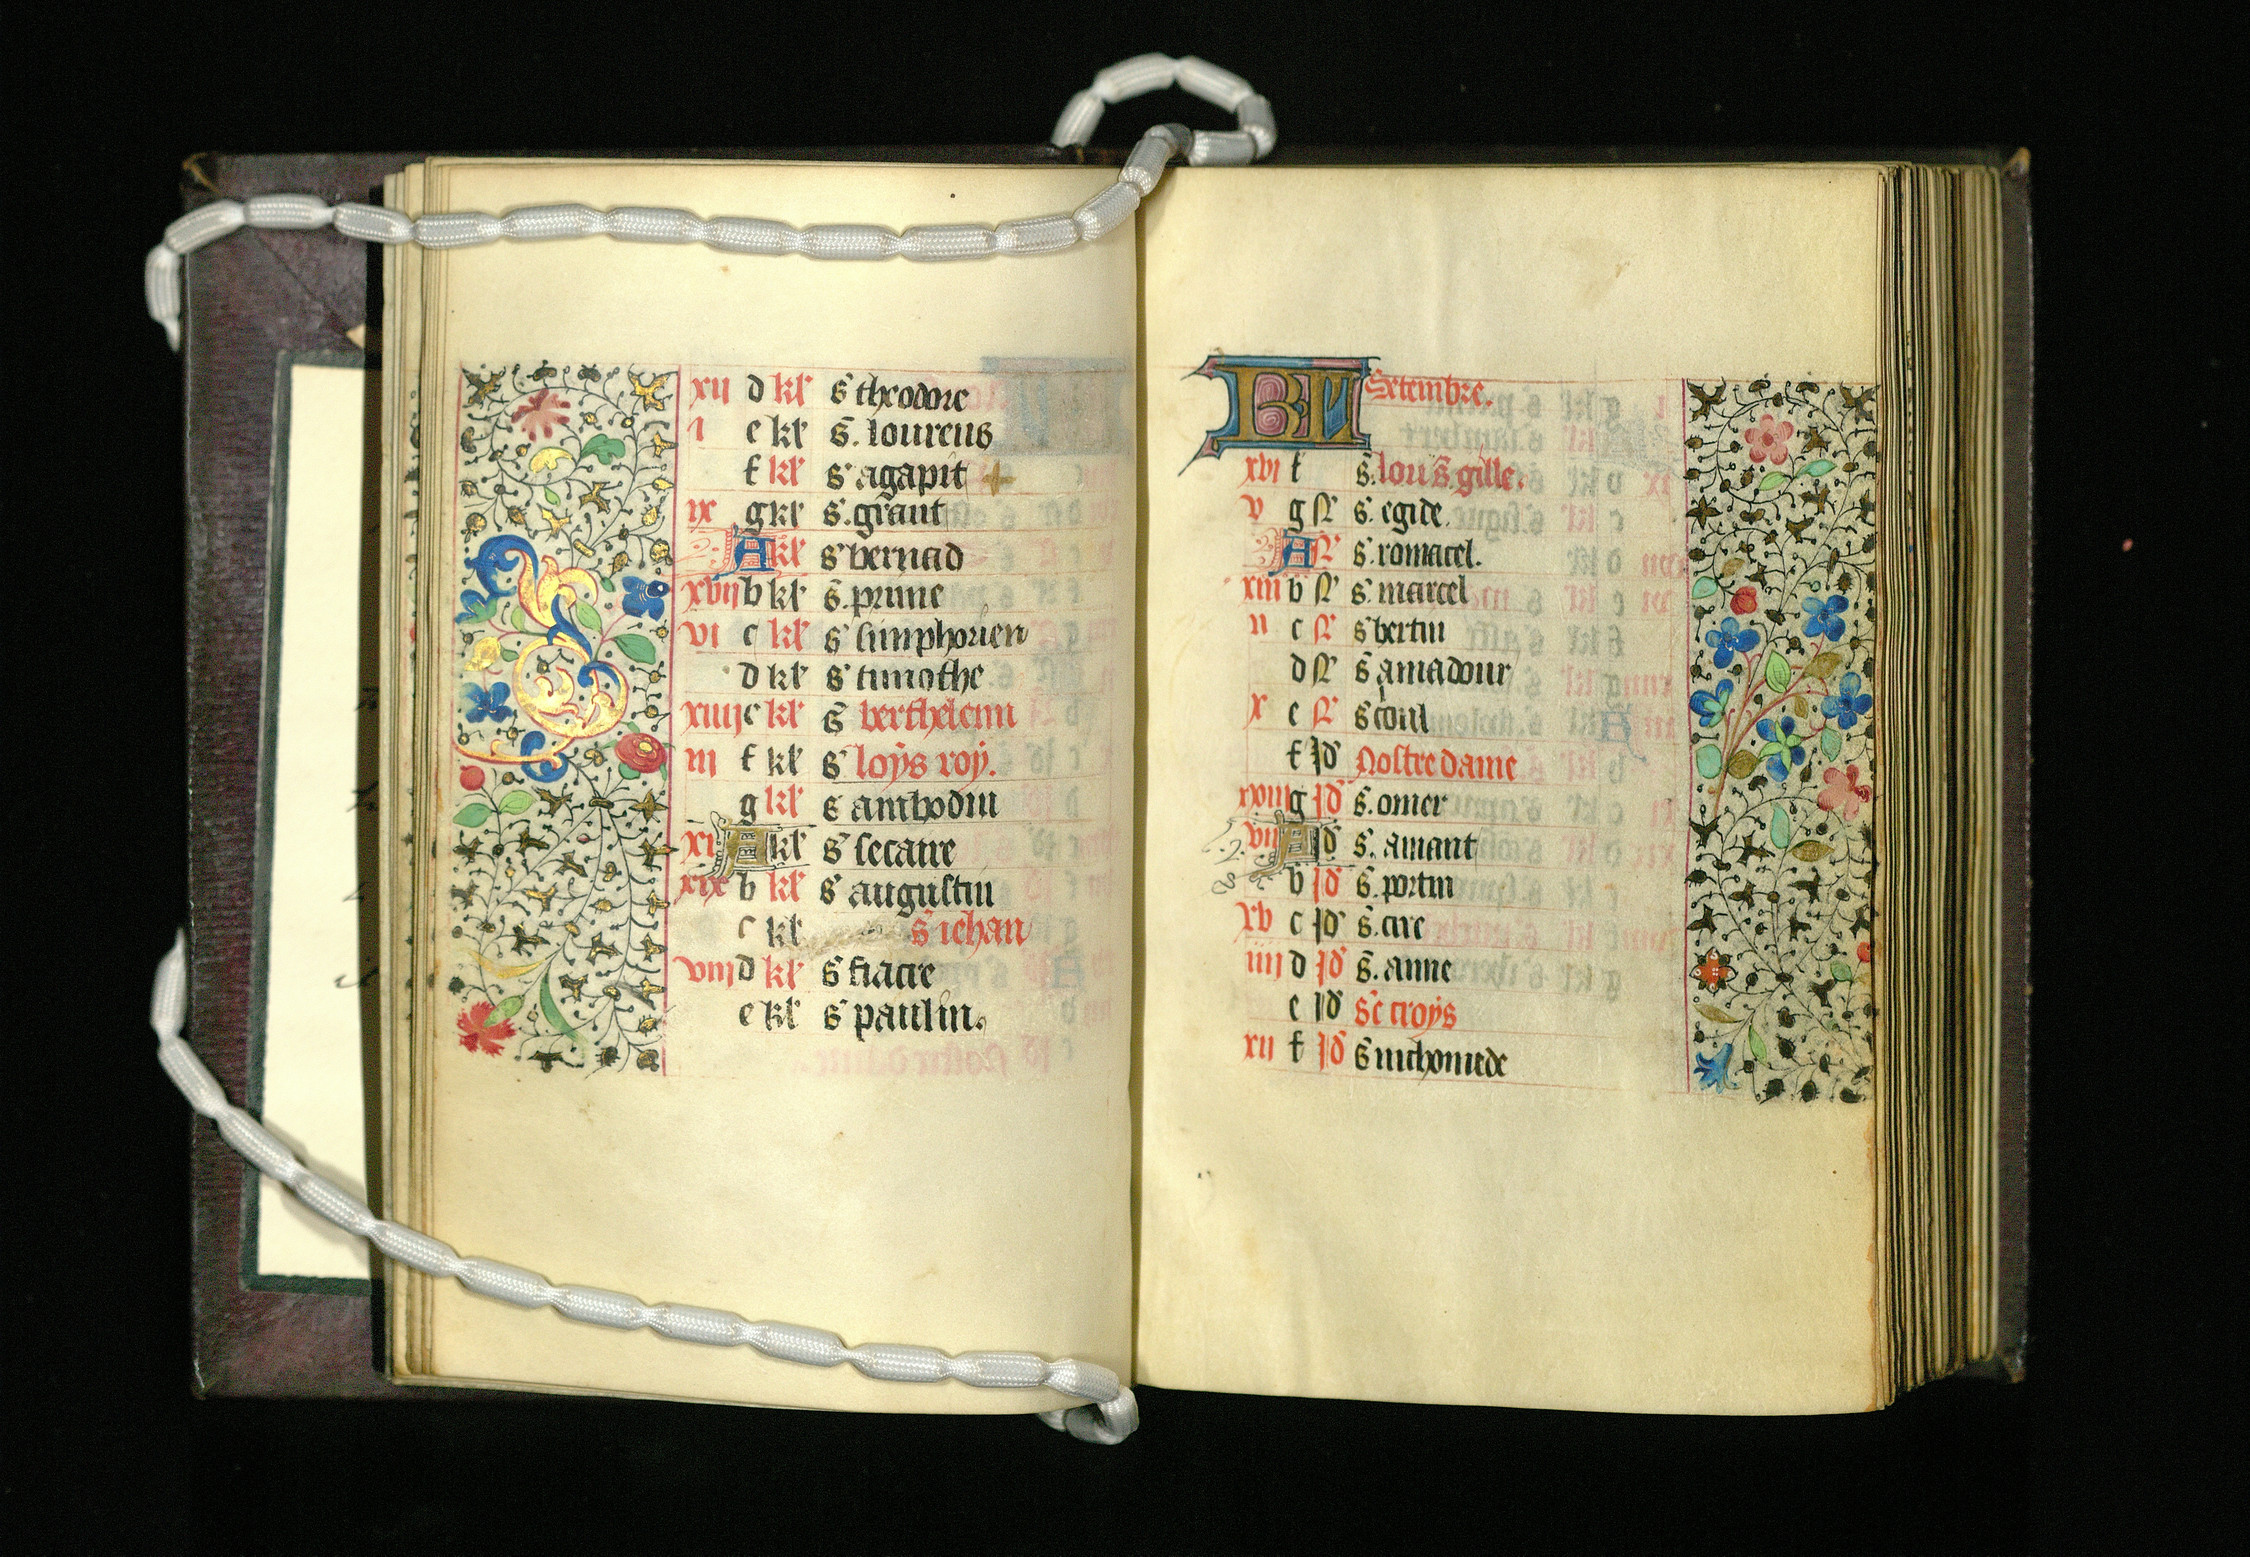 xii d kł s̃ theodore
i e kł s̃. lourens
f kł s̃ agapit
ix g kł s̃. grant
A kł s̃ bernad
xvii b kł s̃. prime
vi c kł s̃ simphorien
d kł s̃ timothe
xiiii c kł s̃ berthelemi
iii f kł s̃ loÿs roÿ.
g kł s ambodiu
xi A kł s̃ secatre
xix b kł s̃ augustin
c kł s̃ iehan
viii d kł s̃ fiacre
e kł s̃ paulin.
KL Setembre.
xvi f s̃. lou s̃. gille.
v g N̄ s̃. egide.
A N̄ s̃. romacel.
xiii b N̄ s̃. marcel
ii c N̄ s̃ bertin
d N̄ s̃ amadour
x e N̄ s̃
f Id̄ Nostre dame
xviii g Id̄ s̃. omer
vii A Id̄ s̃. amant
b Id̄ s̃. portin
xv c Id̄ s̃. cire
iiii d Id̄ s̃. anne
e Id̄ Sc̃ croÿs
xii f Id̄ s̃ nichomede